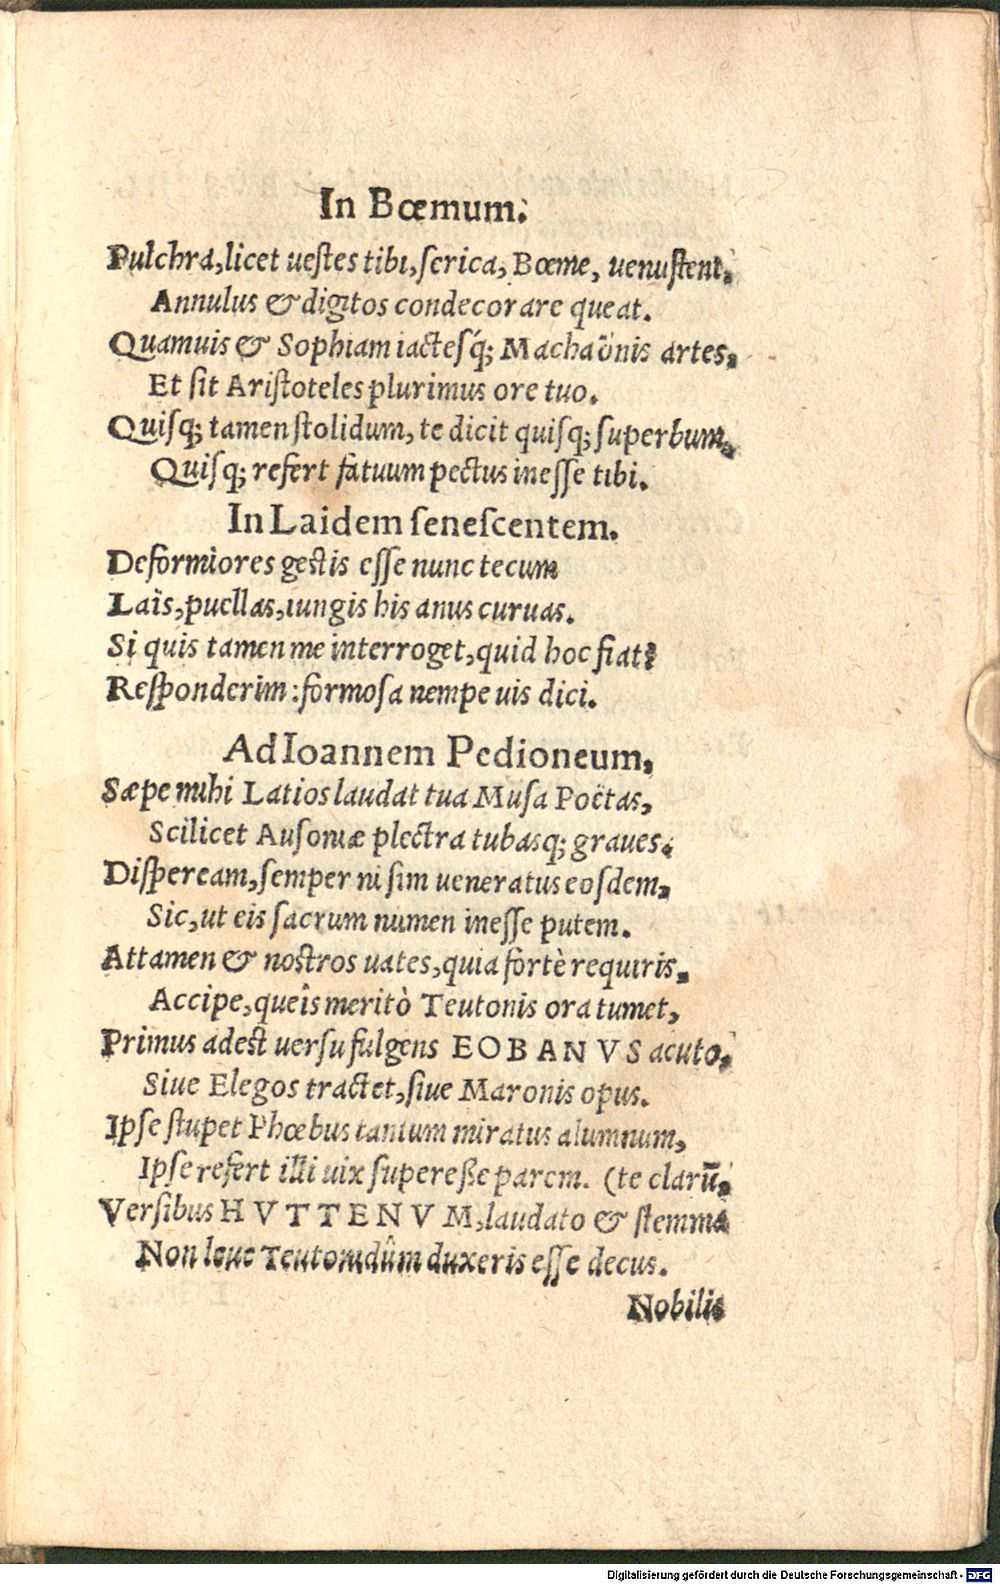 In Bœmum.
Pulchra, licet uestes tibi, serica, Bœme, uenustent,
Annulus & digitos condecorare queat.
Quamuis & Sophiam iactesq́; Machaönis artes,
Et sit Aristoteles plurimus ore tuo.
Quisq; tamen stolidum, te dicit quisq; superbum,
Quisq; refert fatuum pectus inesse tibi.
In Laidem senescentem.
Deformiores gestis esse nunc tecum
Laïs, puellas, iungis his anus curuas.
Si quis tamen me interroget, quid hoc fiat?
Responderim: formosa nempe uis dici.
Ad Ioannem Pedioneum,
Sæpe mihi Latios laudat tua Musa Poëtas,
Scilicet Ausoniæ plectra tubasq; graues.
Dispeream, semper ni sim ueneratus eosdem,
Sic, ut eis sacrum numen inesse putem.
Attamen & nostros uates, quia fortè requiris,
Accipe, queîs meritò Teutonis ora tumet,
Primus adest uersu fulgens EOBANVS acuto,
Siue Elegos tractet, siue Maronis opus.
Ipse stupet Phœbus tantum miratus alumnum,
Ipse refert illi uix superesse parem. (te clarū,
Versibus HVTTENVM, laudato & stemma
Non leue Teutonidûm duxeris esse decus.
Nobilis
Digitalisierung gefördert durch die Deutsche Forschungsgemeinschaft - DFG